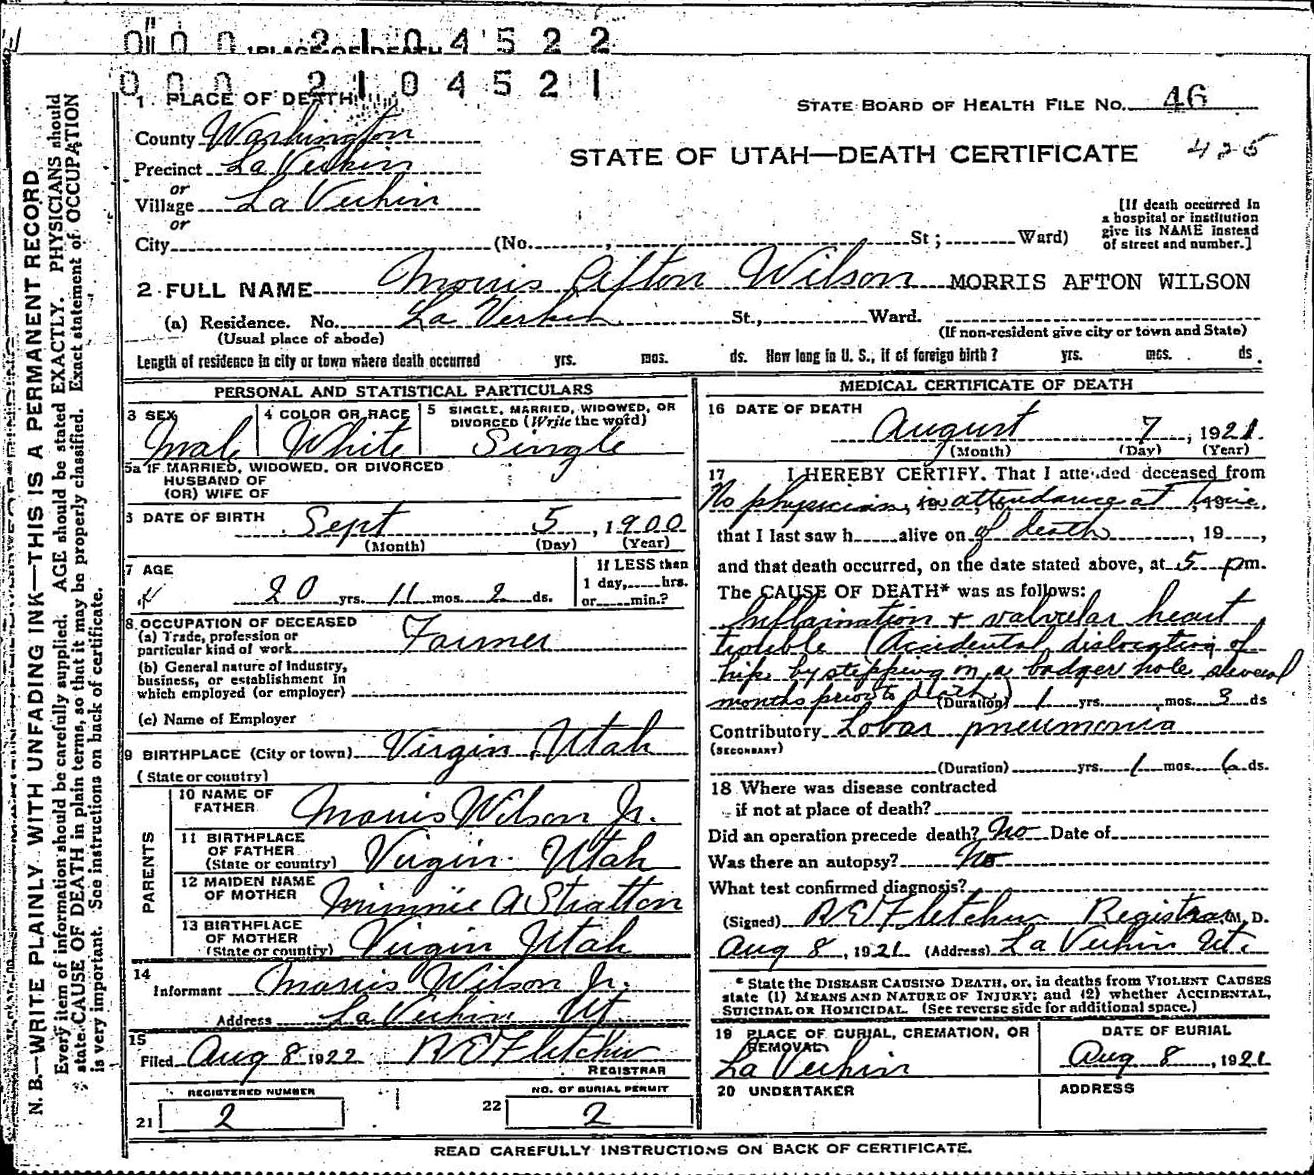 0 0 0 2 1 0 4 5 2 2
1 PLACE OF DEATH
0 0 0 2 1 0 4 5 2 1
1 PLACE OF DEATH
STATE BOARD OF HEALTH FILE No. 46
County Washington
Precinct La Verkin
STATE OF UTAH—DEATH CERTIFICATE 425
or
Village La Verkin
or
City (No. , St; Ward)
[If death occurred in
a hospital or institution
give its NAME instead
of street and number.]
2 FULL NAME Morris Afton Wilson MORRIS AFTON WILSON
(a) Residence. No. La Verkin St., Ward.
(Usual place of abode) (If non-resident give city or town and State)
Length of residence in city or town where death occurred yrs. mos. ds. How long in U. S., if of foreign birth? yrs. mos. ds.
PERSONAL AND STATISTICAL PARTICULARS
3 SEX
Male
4 COLOR OR RACE
White
5 SINGLE, MARRIED, WIDOWED, OR
DIVORCED (Write the word)
Single
5a IF MARRIED, WIDOWED, OR DIVORCED
HUSBAND OF
(OR) WIFE OF
DATE OF BIRTH Sept 5, 1900
(Month) (Day) (Year)
7 AGE
20 yrs. 11 mos. 2 ds.
If LESS than
1 day, hrs.
or min.?
8. OCCUPATION OF DECEASED
(a) Trade, profession or
particular kind of work Farmer
(b) General nature of industry,
business, or establishment in
which employed (or employer)
(c) Name of Employer
9 BIRTHPLACE (City or town) Virgin, Utah
(State or country)
PARENTS
10 NAME OF
FATHER Morris Wilson Jr.
11 BIRTHPLACE
OF FATHER
(State or country) Virgin Utah
12 MAIDEN NAME
OF MOTHER Minnie A Stratton
13 BIRTHPLACE
OF MOTHER
(State or country) Virgin Utah
14
Informant Morris Wilson Jr.
Address La Verkin Ut.
15
Filed Aug 8 1922 R E Fletcher
REGISTRAR
REGISTERED NUMBER
21 2
NO. OF BURIAL PERMIT
22 2
MEDICAL CERTIFICATE OF DEATH
16 DATE OF DEATH
August 7, 1921.
(Month) (Day) (Year)
17 I HEREBY CERTIFY. That I attended deceased from
No physician in attendance at time
that I last saw h alive on of death, 19 ,
and that death occurred, on the date stated above, at 5 pm.
The CAUSE OF DEATH* was as follows:
Inflamation + valvular heart
trouble (Accidental dislocation of
hip by stepping in a badger hole several
months prior to death) (Duration) 1 yrs. mos. 3 ds
Contributory Lobar pneumonia
(SECONDARY)
(Duration) yrs. 1 mos. 6 ds.
18 Where was disease contracted
if not at place of death?
Did an operation precede death? No Date of
Was there an autopsy? No
What test confirmed diagnosis?
(Signed) R E Fletcher Registrar M. D.
Aug 8, 1921 (Address) La Verkin Ut.
* State the DISEASE CAUSING DEATH, or, in deaths from VIOLENT CAUSES
state (1) MEANS AND NATURE OF INJURY; and (2) whether ACCIDENTAL,
SUICIDAL OR HOMICIDAL. (See reverse side for additional space.)
19 PLACE OF BURIAL, CREMATION, OR
REMOVAL
La Verkin
DATE OF BURIAL
Aug 8, 1921
20 UNDERTAKER
ADDRESS
READ CAREFULLY INSTRUCTIONS ON BACK OF CERTIFICATE.
N. B.—WRITE PLAINLY, WITH UNFADING INK—THIS IS A PERMANENT RECORD
Every item of information should be carefully supplied. AGE should be stated EXACTLY. PHYSICIANS should
state CAUSE OF DEATH in plain terms, so that it may be properly classified. Exact statement of OCCUPATION
is very important. See instructions on back of certificate.